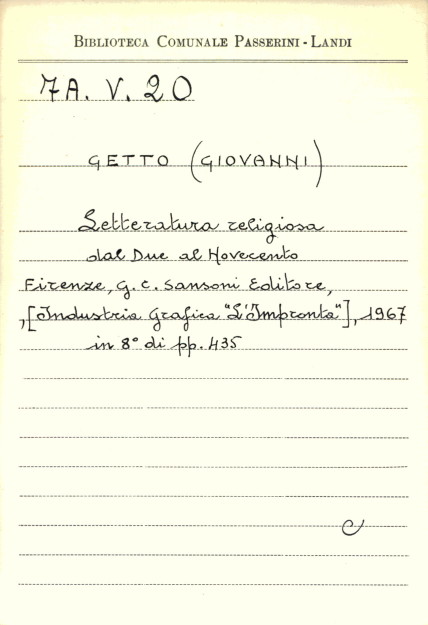 BIBLIOTECA COMUNALE PASSERINI - LANDI
7A. V. 20
GETTO (GIOVANNI)
Letteratura religiosa
dal Due al Novecento
Firenze, G. C. Sansoni Editore,
,[Industria Grafica "L'Impronta"], 1967
in 8° di pp. 435
C